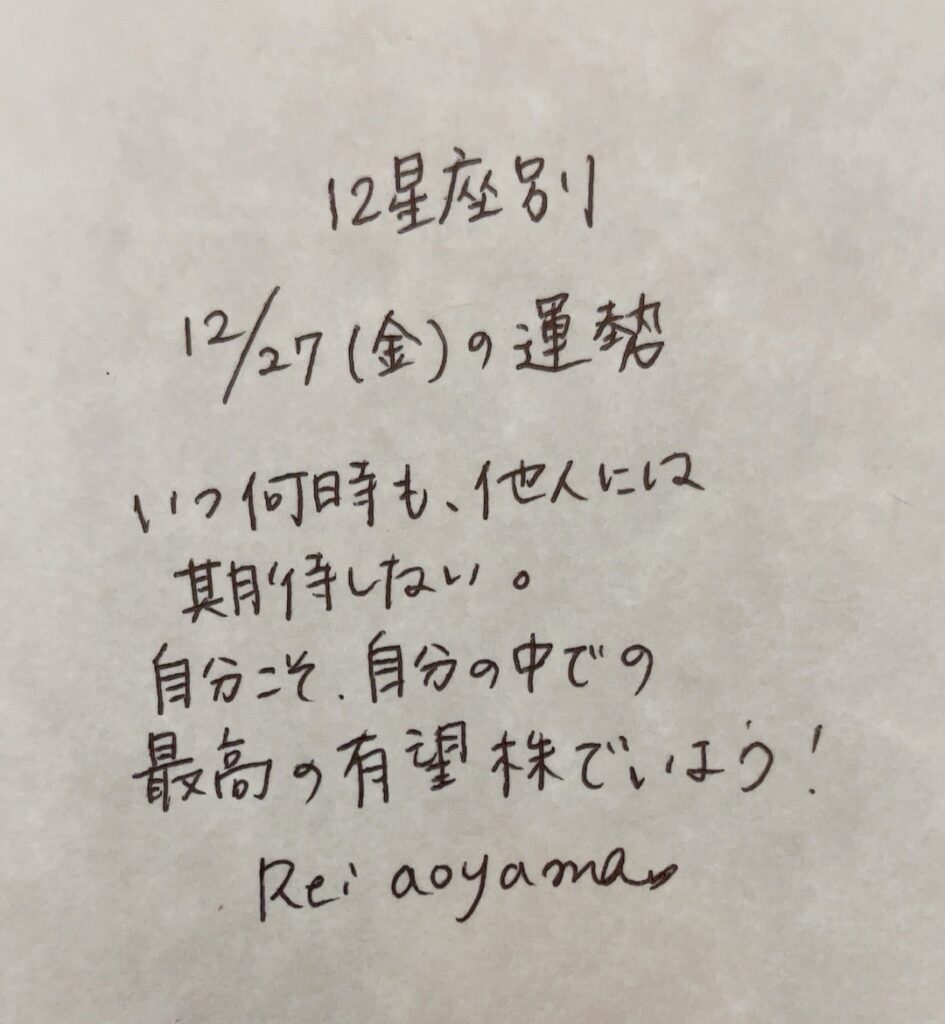 12星座別
12/27(金)の運勢
いつ何時も、他人には
期待しない。
自分こそ、自分の中での
最高の有望株でいよう!
Rei aoyama